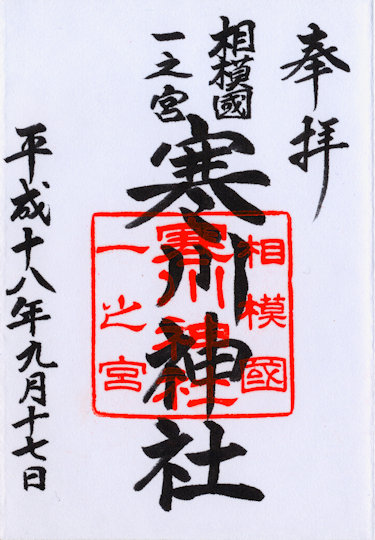 奉拝
相模國
一之宮
寒川神社
平成十八年九月十七日
相模國
寒川神社
一之宮